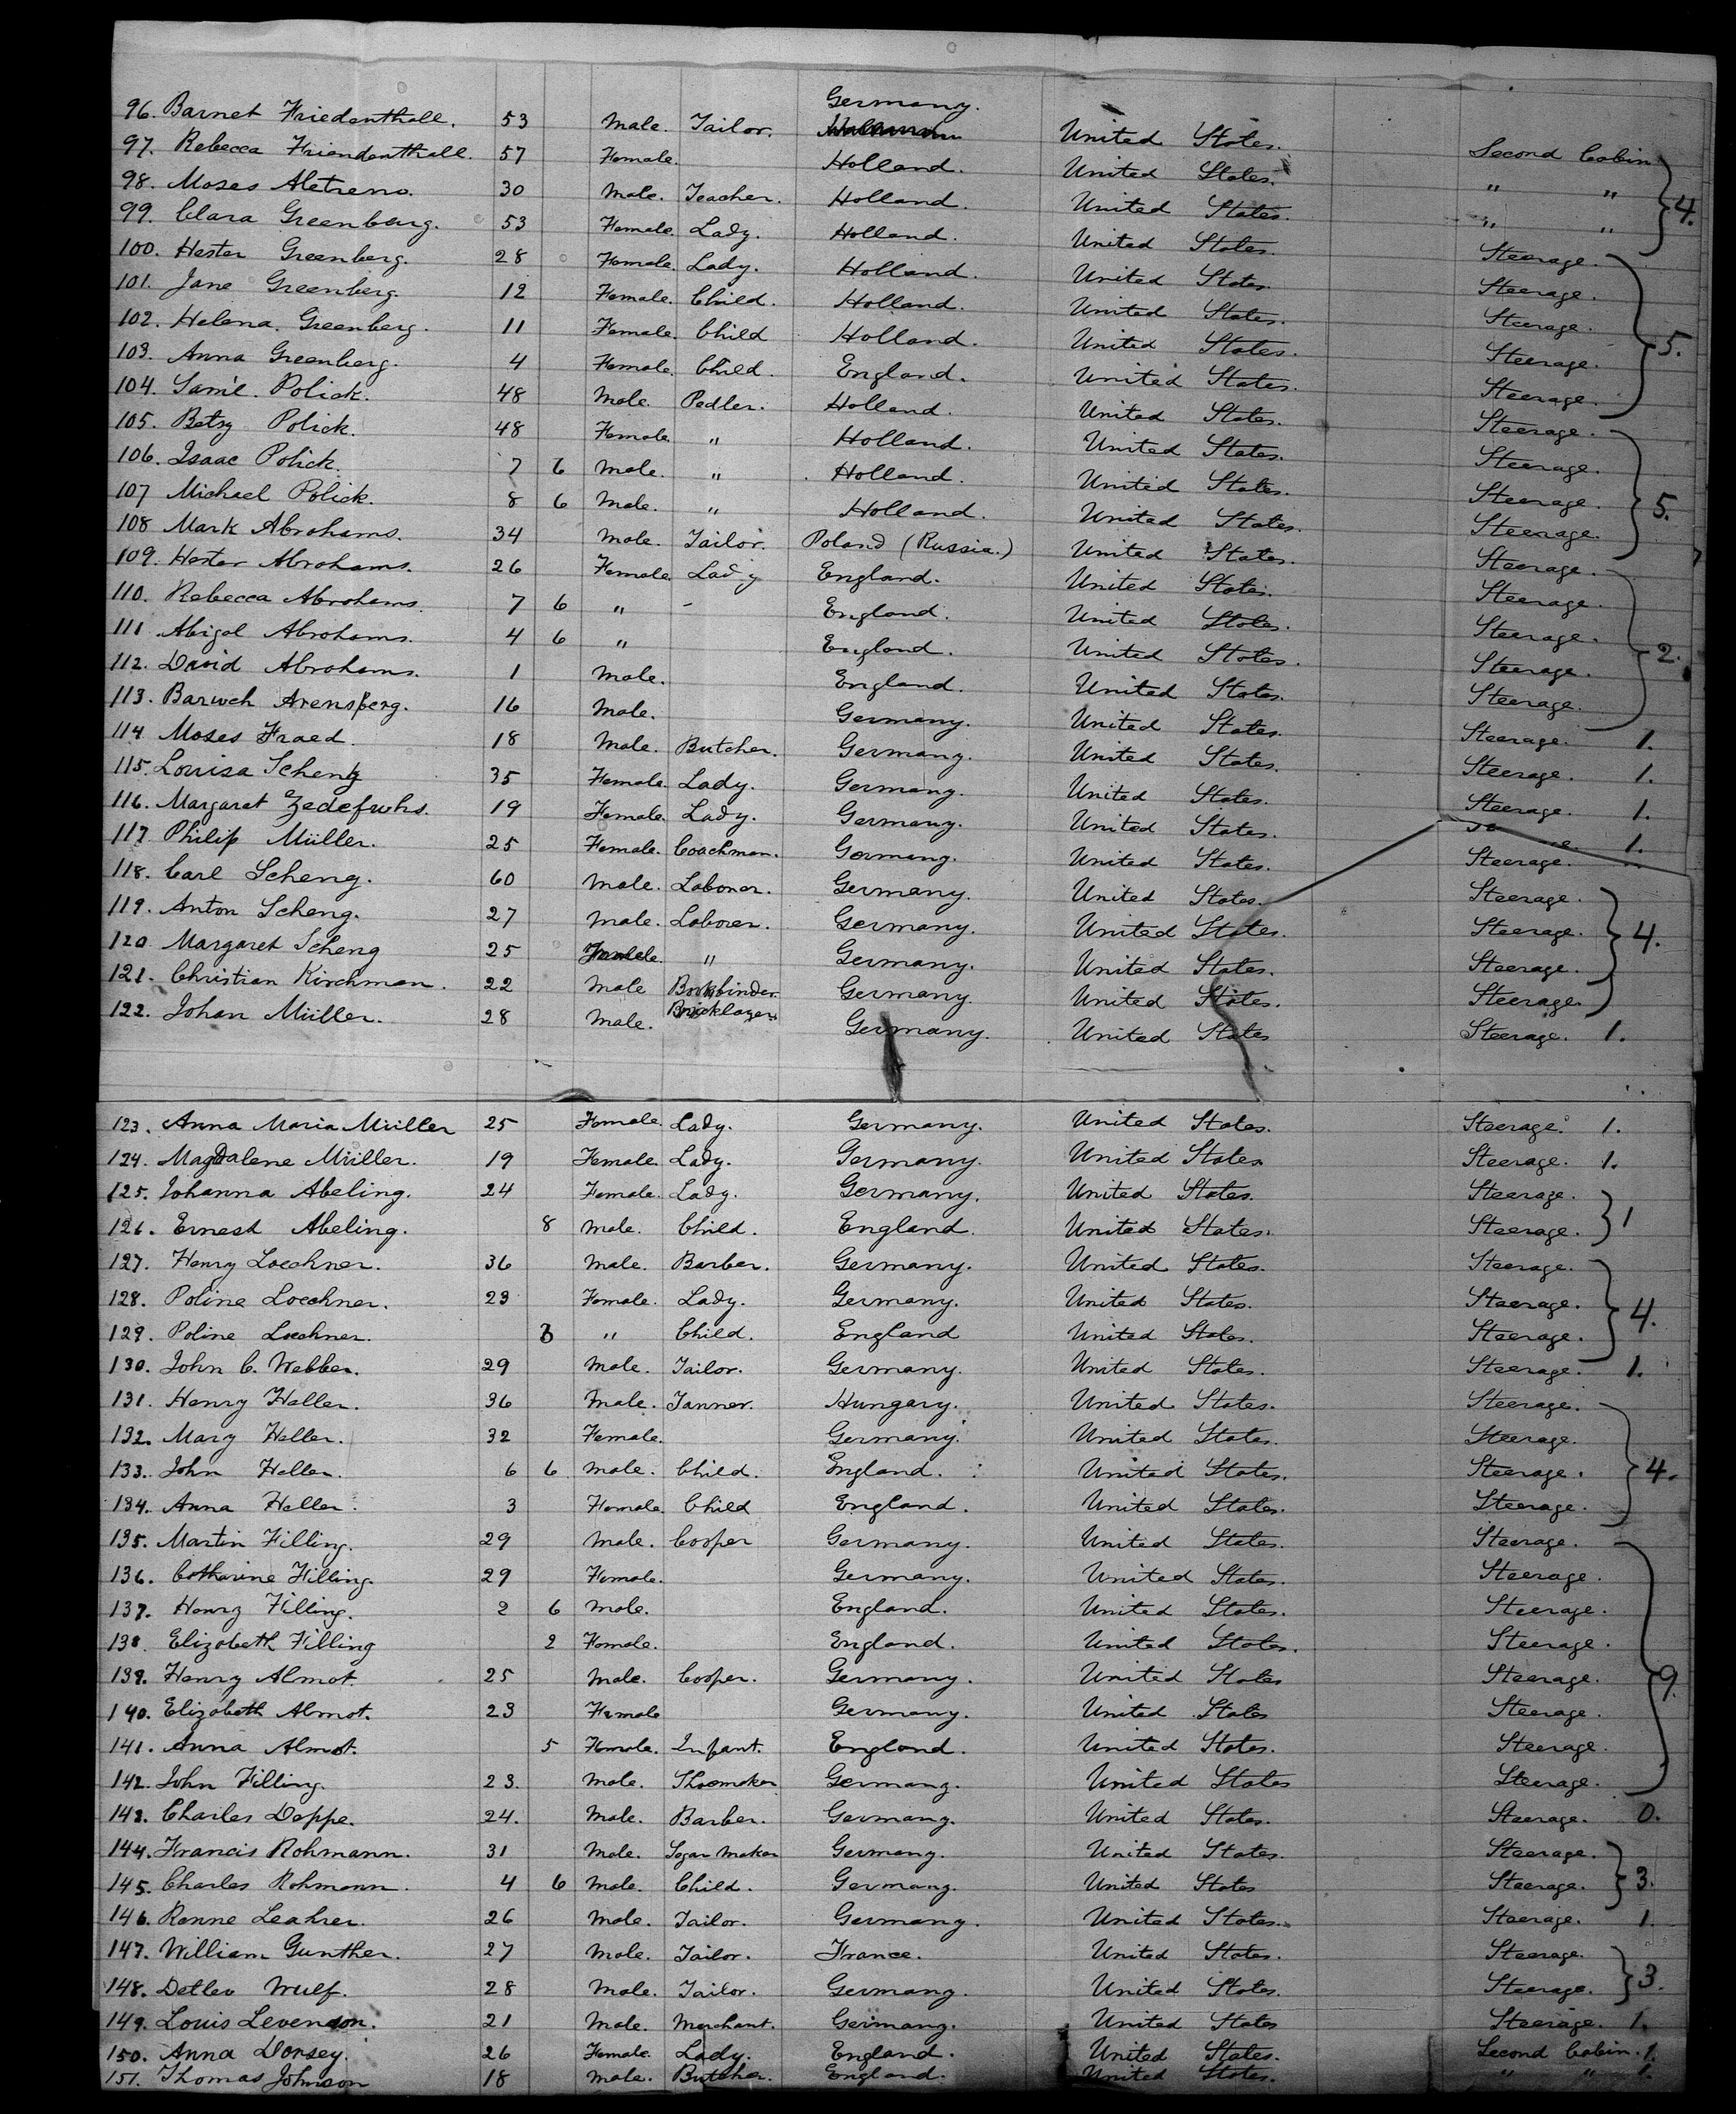 96. Barnet Friedenthall. 53 Male. Tailor. Germany. United States.
97. Rebecca Friendenthall. 57 Female. Holland. United States. Second Cabin
98. Moses Aletreno. 30 Male. Teacher. Holland. United States. " " 4.
99. Clara Greenberg. 53 Female. Lady. Holland. United States. " "
100. Hester Greenberg. 28 Female. Lady. Holland. United States. Steerage.
101. Jane Greenberg. 12 Female. Child. Holland. United States. Steerage.
102. Helena. Greenberg. 11 Female. Child Holland. United States. Steerage. 5.
103. Anna Greenberg. 4 Female. Child. England. United States. Steerage.
104. Saml. Polick. 48 Male. Pedler. Holland. United States. Steerage.
105. Betsy Polick. 48 Female " Holland. United States. Steerage.
106. Isaac Polick. 7 6 Male. " Holland. United States. Steerage.
107 Michael Polick. 8 6 Male. " Holland. United States. Steerage. 5.
108 Mark Abrahams. 34 Male. Tailor. Poland (Russia.) United States. Steerage.
109. Hester Abrahams. 26 Female Lady England. United States. Steerage.
110. Rebecca Abrahams. 7 6 " - England. United States. Steerage.
111 Abigal Abrahams. 4 6 " England. United States. Steerage. 2.
112. David Abrahams. 1 Male. England. United States. Steerage.
113. Barwch Arensperg. 16 Male. Germany. United States. Steerage.
114 Moses Fraed. 18 Male. Butcher. Germany. United States. Steerage. 1.
115. Louisa Schentz 35 Female. Lady. Germany. United States. Steerage. 1.
116. Margaret Zedefuhs. 19 Female. Lady. Germany. United States. Steerage. 1.
117 Philip Müller. 25 Female. Coachman. Germany. United States. Steerage. 1.
118. Carl Scheng. 60 Male. Laborer. Germany. United States. Steerage.
119. Anton Scheng. 27 Male. Laborer. Germany. United States. Steerage. 4.
120. Margaret Scheng 25 Female. " Germany. United States. Steerage.
121. Christian Kirchman. 22 Male Bookbinder. Germany United States. Steerage.
122. Johan Müller. 28 Male. Bricklayer. Germany. United States Steerage. 1.
123. Anna Maria Müller 25 Female. Lady. Germany. United States. Steerage. 1.
124. Magdalene Müller. 19 Female. Lady. Germany. United States. Steerage. 1.
125. Johanna Abeling. 24 Female. Lady. Germany. United States. Steerage.
126. Ernest Abeling. 8 Male. Child. England. United States. Steerage. 1
127. Henry Loechner. 36 Male. Barber. Germany. United States. Steerage.
128. Poline Loechner. 23 Female. Lady. Germany. United States. Steerage. 4.
129. Poline Loechner. " Child. England United States. Steerage.
130. John C. Webber. 29 Male. Tailor. Germany. United States. Steerage. 1.
131. Henry Heller. 36 Male. Tanner. Hungary. United States. Steerage.
132. Mary Heller. 32 Female. Germany. United States. Steerage.
133. John Heller. 6 6 Male. Child. England. United States. Steerage. 4.
134. Anna Heller. 3 Female. Child England. United States. Steerage.
135. Martin Filling. 29 Male. Cooper Germany. United States. Steerage.
136. Catharine Filling. 29 Female. Germany. United States. Steerage.
137. Henry Filling. 2 6 Male. England. United States. Steerage.
138. Elizabeth Filling 2 Female. England. United States. Steerage.
139. Henry Almot. 25 Male. Cooper. Germany. United States Steerage. 9.
140. Elizabeth Almot. 23 Female Germany. United States Steerage.
141. Anna Almot. 5 Female. Infant. England. United States. Steerage.
142. John Filling. 23. Male. Shoemaker Germany. United States Steerage.
143. Charles Deppe. 24. Male. Barber. Germany. United States. Steerage. 0.
144. Francis Rohmann. 31 Male. Segar Maker Germany. United States. Steerage.
145. Charles Rohmann. 4 6 Male. Child. Germany. United States Steerage. 3.
146. Renne Leahrer. 26 Male. Tailor. Germany. United States. Steerage. 1.
147. William Gunther. 27 Male. Tailor. France. United States. Steerage.
148. Detlev Wulf. 28 Male. Tailor. Germany. United States. Steerage. 3.
149. Louis Levenson. 21 Male. Merchant. Germany. United States Steerage. 1.
150. Anna Dorsey. 26 Female. Lady. England. United States. Second Cabin. 1.
151. Thomas Johnson 18 Male. Butcher. England. United States. " " 1.